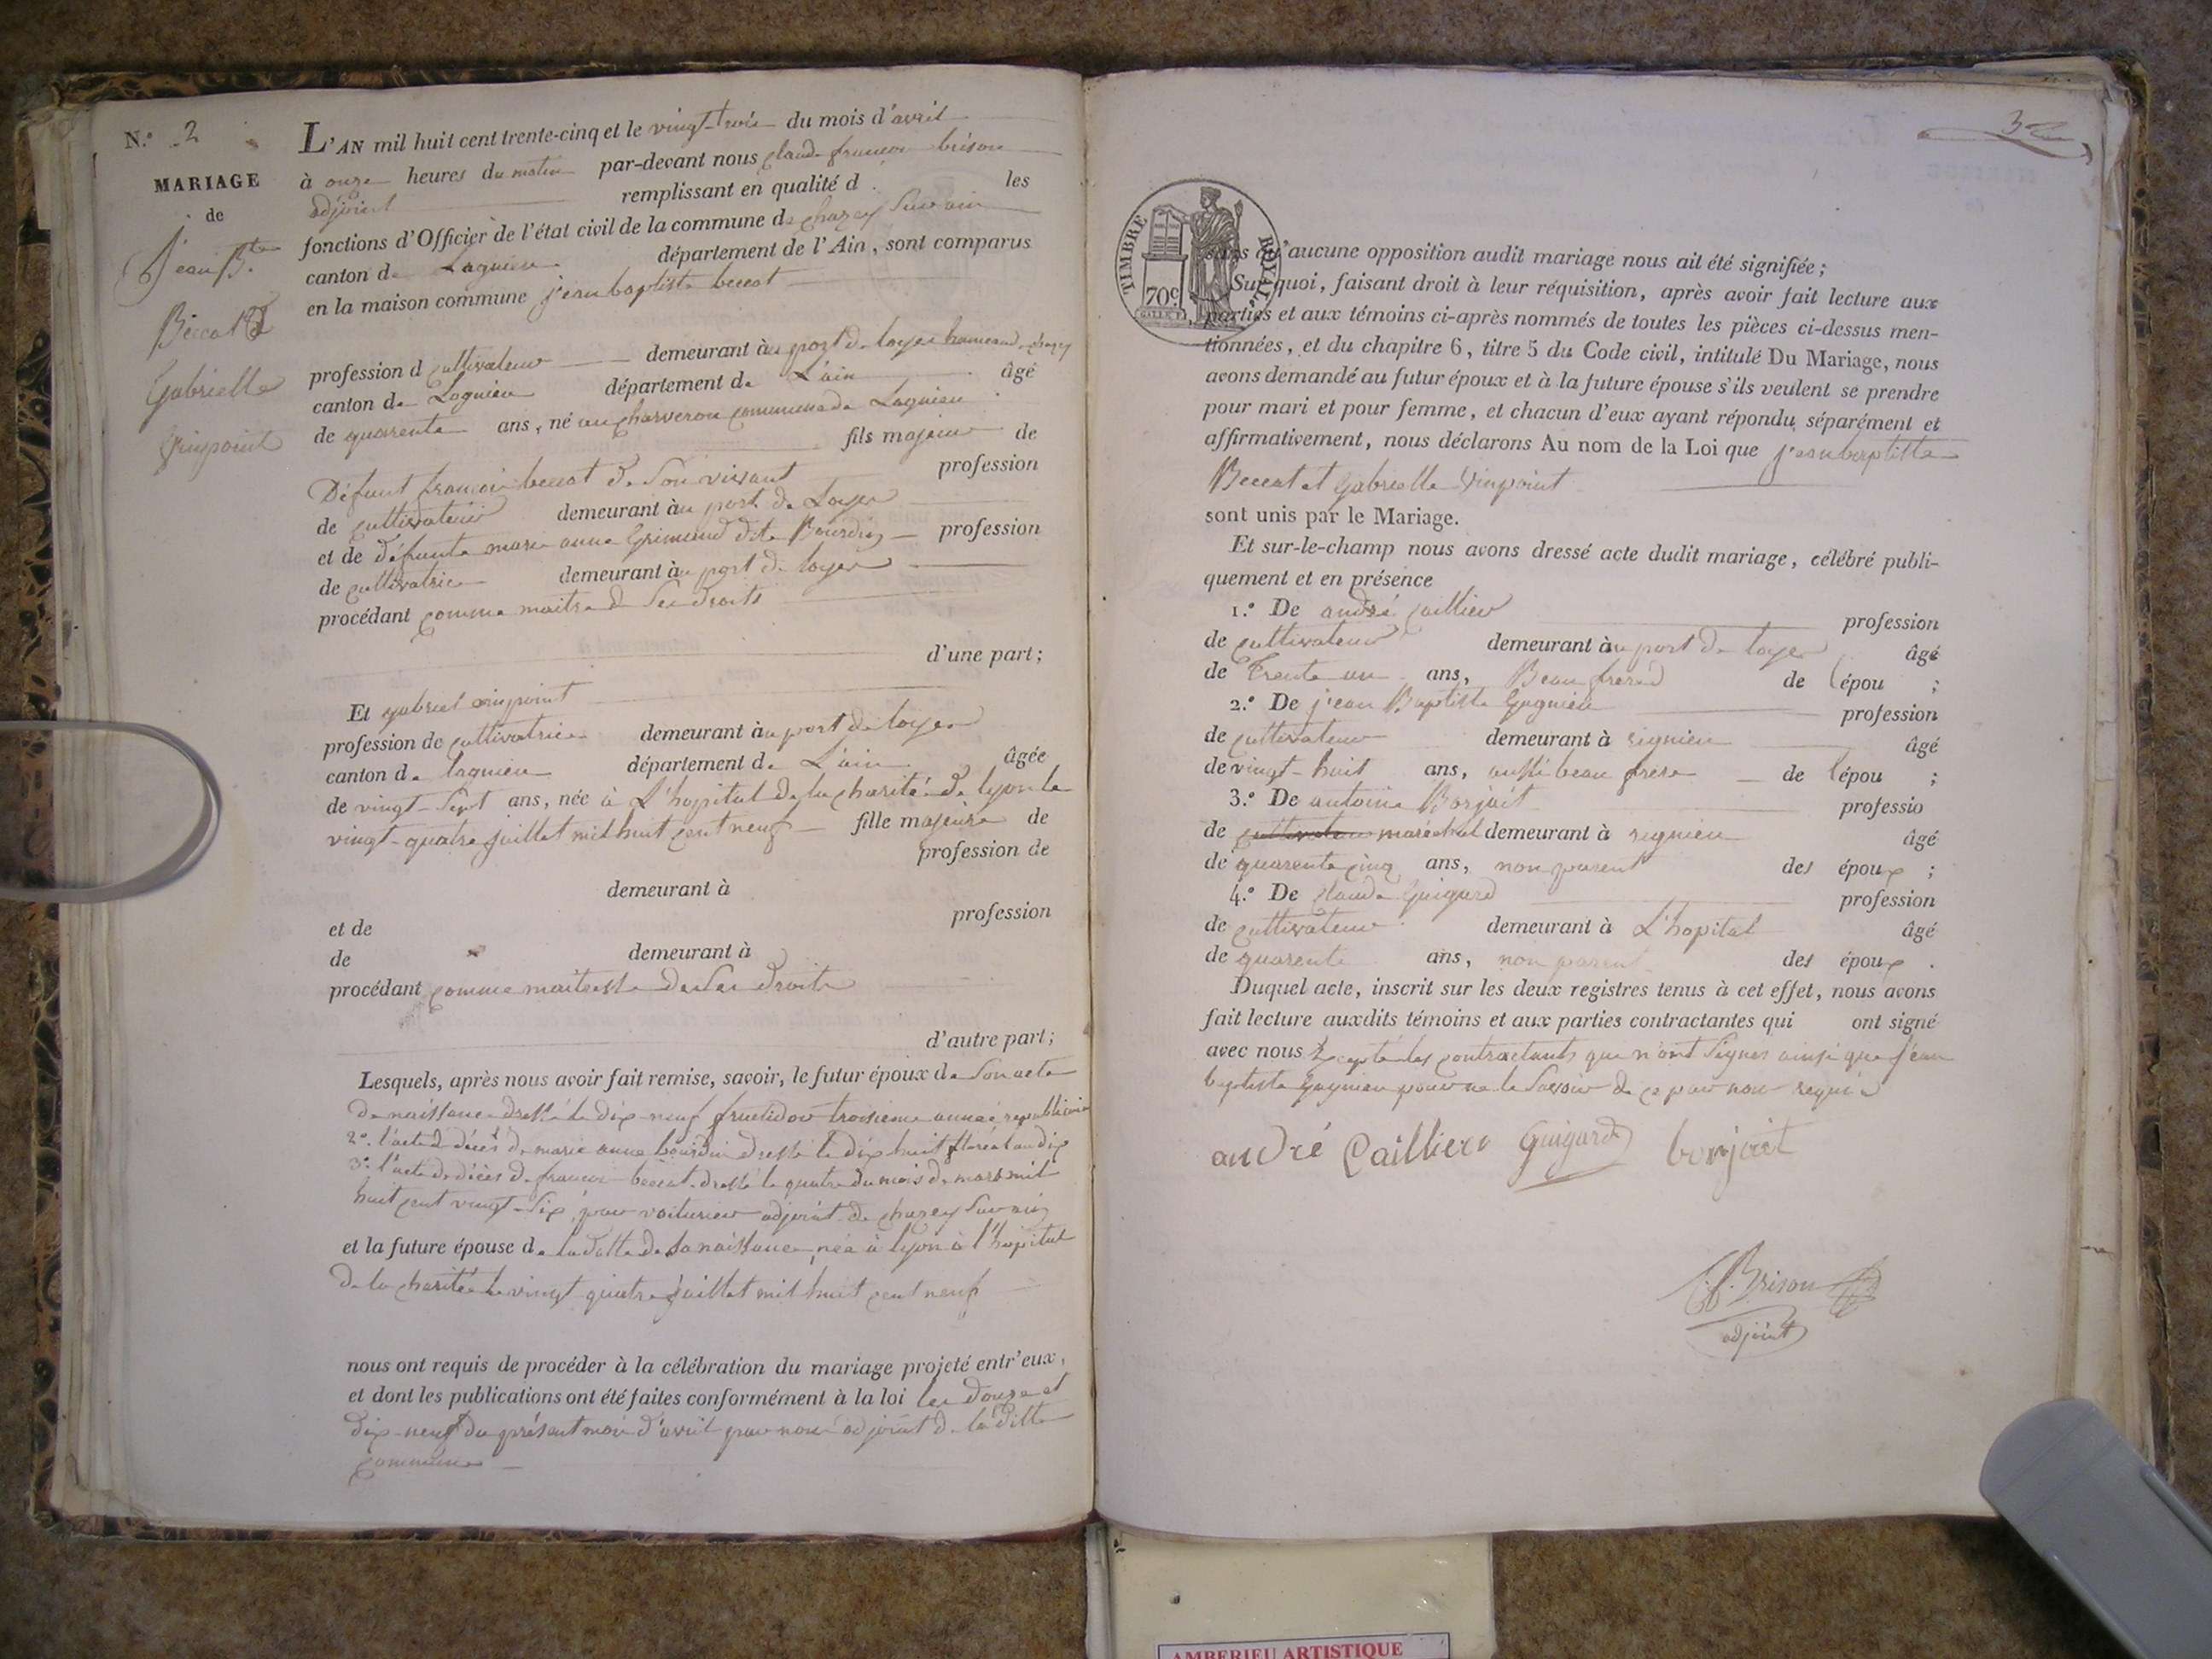 N.º 2
MARIAGE
de
Jean B.te
Beccat &
Gabrielle
Vinpoint
L'AN mil huit cent trente-cinq et le vingt-trois du mois d'avril
à onze heures du matin par-devant nous Claude françois brison
adjoint remplissant en qualité d les
fonctions d'Officier de l'état civil de la commune de Chazey Sur ain
canton de Lagnieu département de l'Ain, sont comparus
en la maison commune jean baptiste beccat
profession d cultivateur demeurant au port de loyes hameau de chazey
canton de Lagnieu département de L'ain âgé
de quarente ans, né au charveron commune de Lagnieu
fils majeur de
Défunt françois beccat de Son vivant profession
de cultivateur demeurant au port de Loyes
et de défunte marie anne Grimaud dite Bourdin profession
de cultivatrice demeurant au port de loyes
procédant comme maitre de Ses droits
d'une part;
Et gabriel vinpoint
profession de cultivatrice demeurant au port de loyes
canton de lagnieu département de L'ain âgée
de vingt-Sept ans, née à L'hopital de la charité de lyon le
vingt-quatre juillet mil huit cent neuf fille majeure de
profession de
demeurant à
et de profession
de demeurant à
procédant comme maitresse de Ses droits
d'autre part;
Lesquels, après nous avoir fait remise, savoir, le futur époux de Son acte
de naissance dressé le dix-neuf fructidor troisieme année republicaine
2.º l'acte de décès de marie anne bourdin dressé le dix huit floréal an dix
3.º l'acte de décès de francois beccat dressé le quatre du mois de mars mil
huit cent vingt-Six, par voiturier adjoint de chazey Sur ain
et la future épouse de la datte de Sa naissance, née à lyon à l'hopital
de la charité le vingt quatre juillet mil huit cent neuf
nous ont requis de procéder à la célébration du mariage projeté entr'eux,
et dont les publications ont été faites conformément à la loi les douze et
dix-neuf du présent mois d'avril par nous adjoint de la ditte
commune
32
TIMBRE ROYAL
70c
sans qu'aucune opposition audit mariage nous ait été signifiée;
Sur quoi, faisant droit à leur réquisition, après avoir fait lecture aux
parties et aux témoins ci-après nommés de toutes les pièces ci-dessus men-
tionnées, et du chapitre 6, titre 5 du Code civil, intitulé Du Mariage, nous
avons demandé au futur époux et à la future épouse s'ils veulent se prendre
pour mari et pour femme, et chacun d'eux ayant répondu séparément et
affirmativement, nous déclarons Au nom de la Loi que jean baptiste
Beccat et Gabrielle Vinpoint
sont unis par le Mariage.
Et sur-le-champ nous avons dressé acte dudit mariage, célébré publi-
quement et en présence
1.º De andré caillier profession
de cultivateur demeurant au port de loyes âgé
de Trente un ans, Beau frere de l'épou ;
2.º De jean Baptiste Gagnieu profession
de cultivateur demeurant à rignieu âgé
de vingt-huit ans, aussi beau frere de l'épou ;
3.º De antoine Borjait professio
de cultivateur maréchal demeurant à rignieu âgé
de quarente cinq ans, non parent des époux ;
4.º De Claude Guigard profession
de cultivateur demeurant à L'hopital âgé
de quarente ans, non parent des époux .
Duquel acte, inscrit sur les deux registres tenus à cet effet, nous avons
fait lecture auxdits témoins et aux parties contractantes qui ont signé
avec nous Excepté les contractants que n'ont Signés ainsi que jean
baptiste Gagnieu pour ne le Savoir de ce par nous requis
andré Caillier Guigard borjait
C. f. Brison
adjoint
AMBERIEU ARTISTIQUE